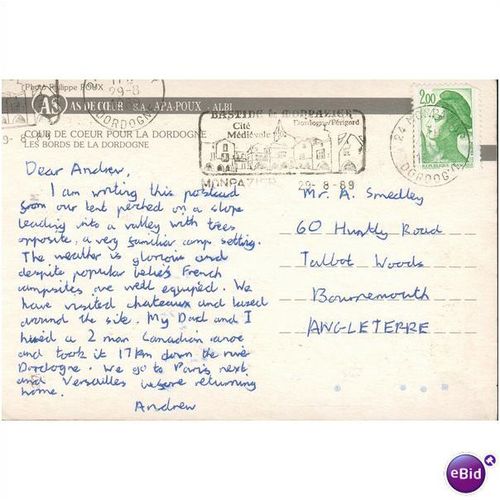 Photo Philippe ROUX
AS DE CŒUR S.A. APA-POUX - ALBI
COUP DE COEUR POUR LA DORDOGNE
LES BORDS DE LA DORDOGNE
29-8
DORDOGNE
BASTIDE de MONPAZIER
Cité Dordogne/Périgord
Médiévale
MONPAZIER 29-8-89
2,00
DORDOGNE
Dear Andrew,
I am writing this postcard
from our tent perched on a slope
leading into a valley with trees
opposite, a very familiar camp setting.
The weather is glorious and
despite popular belief French
campsites are well equiped. We
have visited chateaux and lazed
around the site. My Dad and I
hired a 2 man Canadian canoe
and took it 17km down the river
Dordogne. We go to Paris next
and Versailles before returning
home.
Andrew
Mr. A. Smedley
60 Huntly Road
Talbot Woods
Bournemouth
ANGLETERRE
eBid